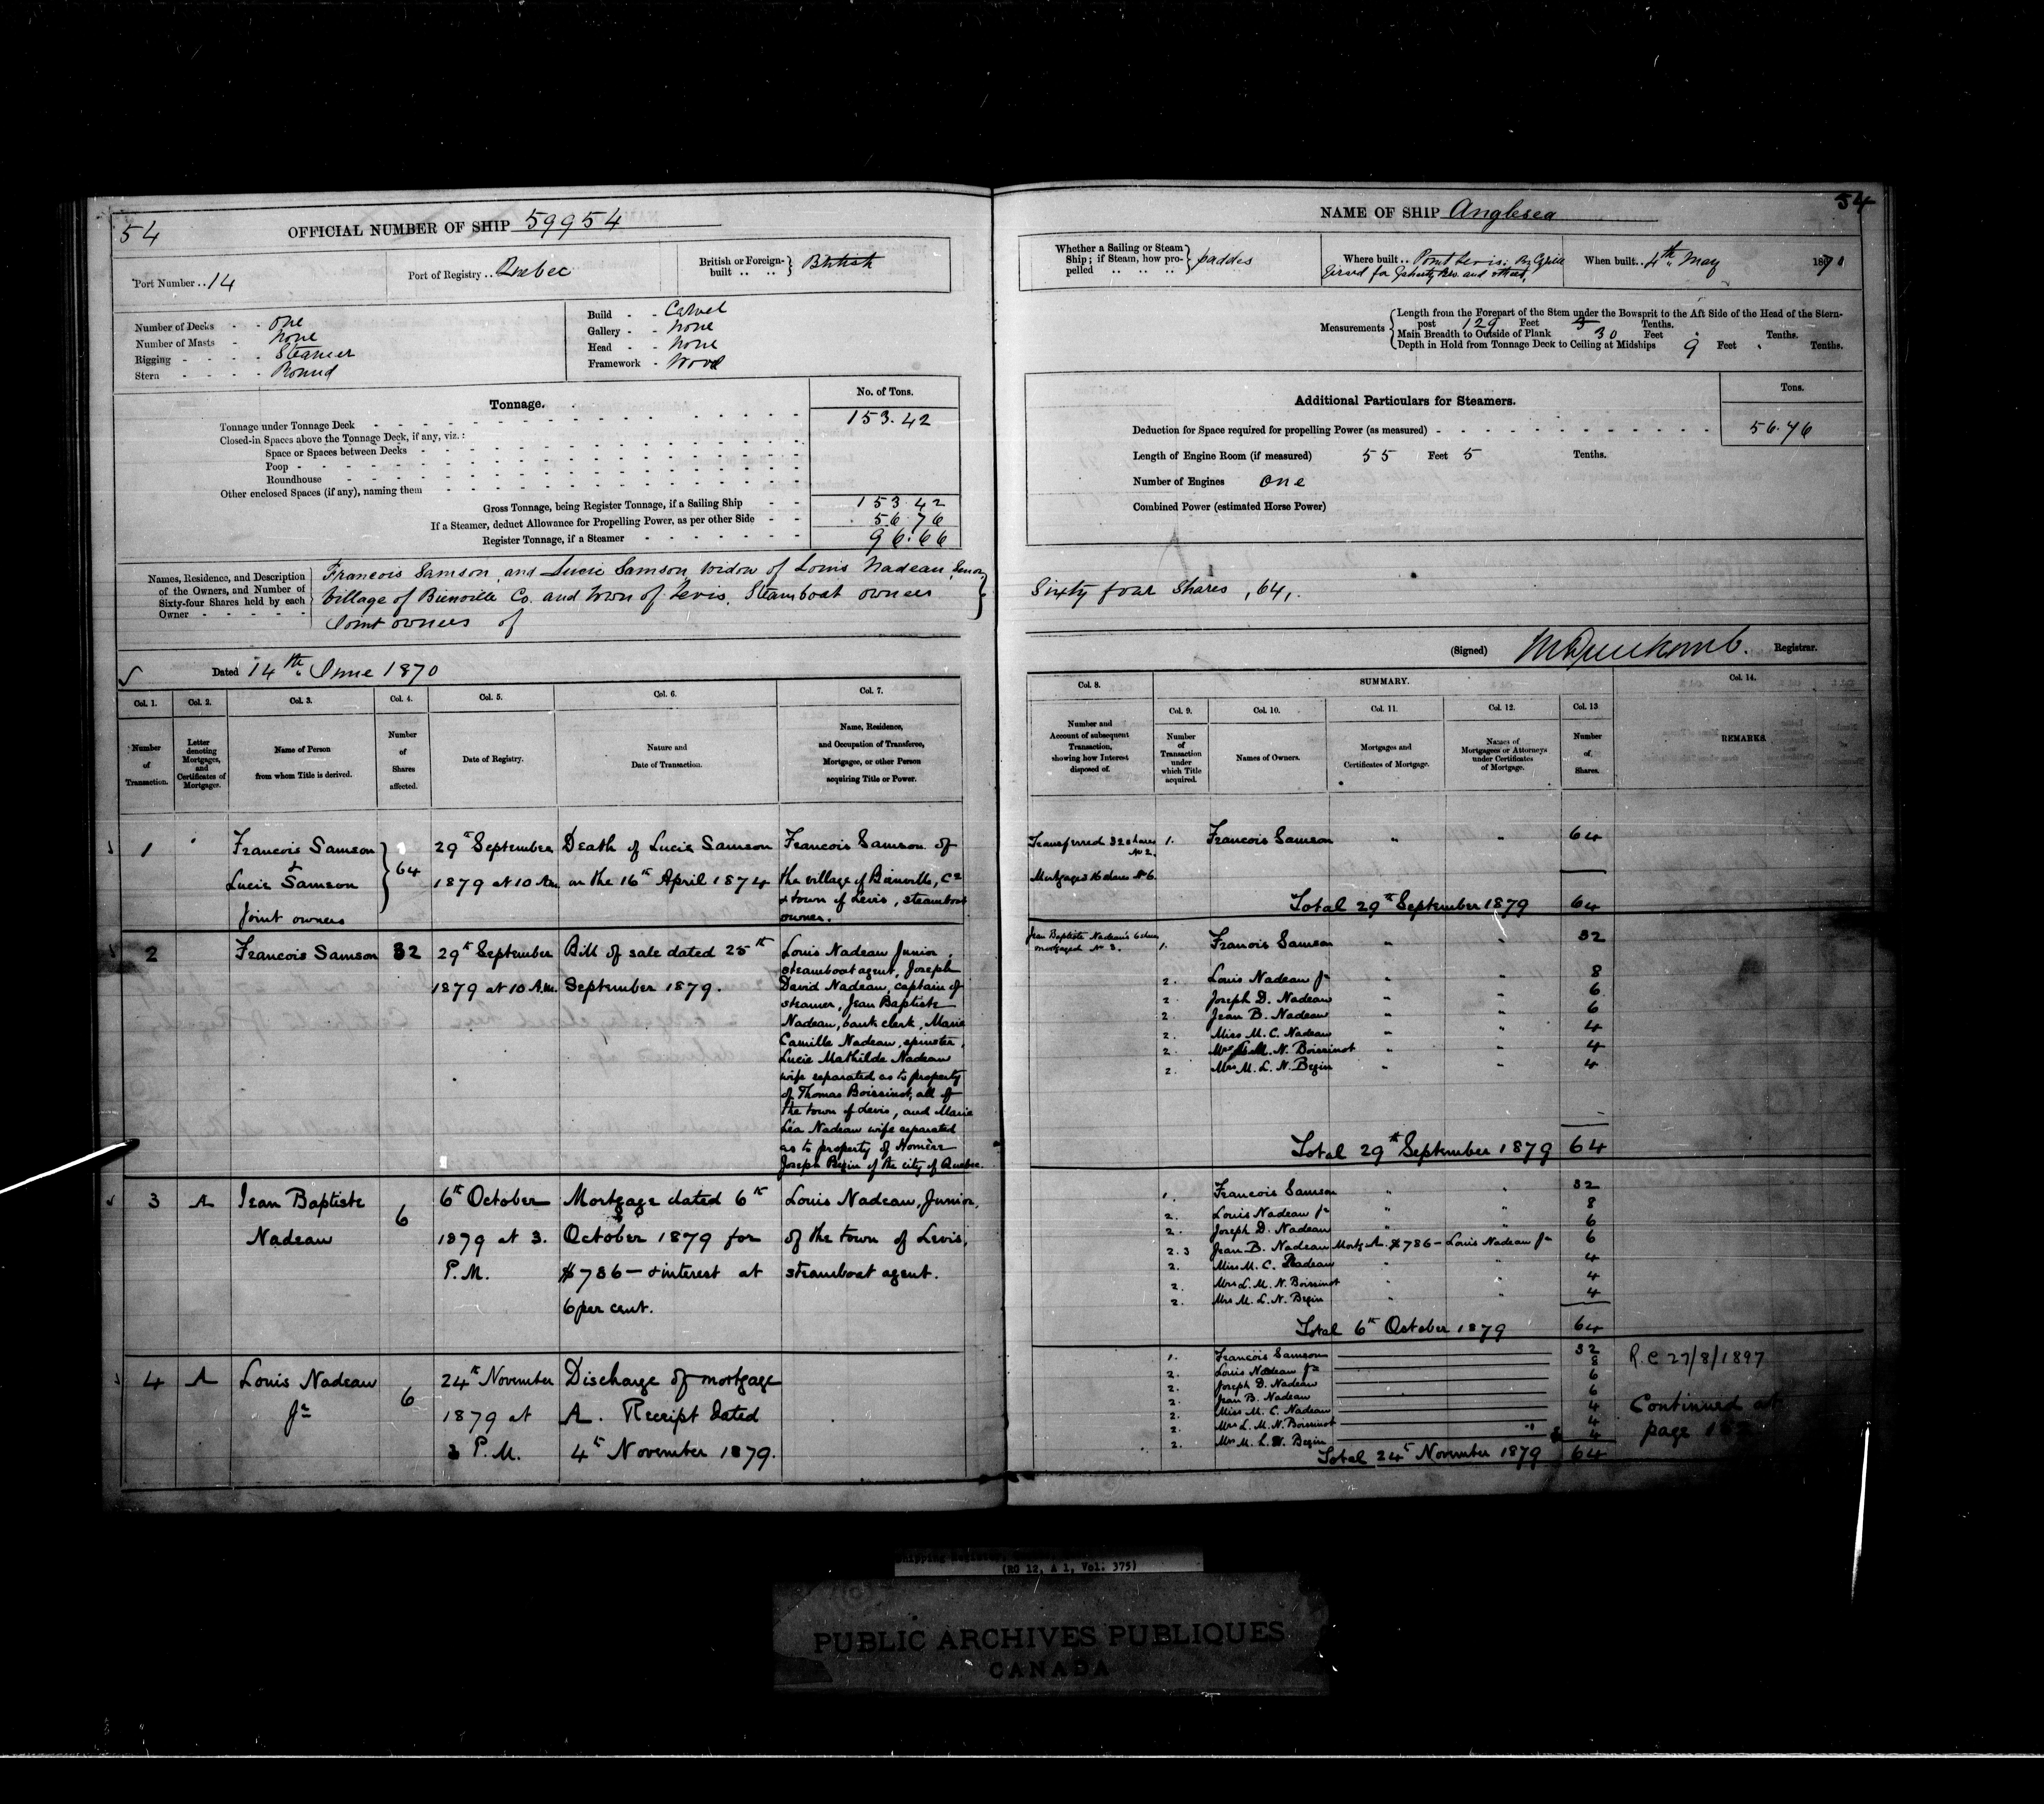 54
OFFICIAL NUMBER OF SHIP 59954
Port Number .. 14
Port of Registry .. Quebec
British or Foreign-built .. .. } British
Number of Decks - - one
Number of Masts - none
Rigging - - - - Steamer
Stern - - - - Round
Build - - Carvel
Gallery - - none
Head - - none
Framework - Wood
Tonnage.
No. of Tons.
Tonnage under Tonnage Deck 153.42
Closed-in Spaces above the Tonnage Deck, if any, viz.:
Space or Spaces between Decks
Poop
Roundhouse
Other enclosed Spaces (if any), naming them
Gross Tonnage, being Register Tonnage, if a Sailing Ship 153.42
If a Steamer, deduct Allowance for Propelling Power, as per other Side 56.76
Register Tonnage, if a Steamer 96.66
Names, Residence, and Description of the Owners, and Number of Sixty-four Shares held by each Owner
Francois Samson, and Lucie Samson, widow of Louis Nadeau, Senor,
Village of Bienville Co. and Town of Levis, Steamboat owners
Joint owners of
Dated 14th June 1870
Col. 1. Col. 2. Col. 3. Col. 4. Col. 5. Col. 6. Col. 7.
Number of Transaction.
Letter denoting Mortgages, and Certificates of Mortgages.
Name of Person from whom Title is derived.
Number of Shares affected.
Date of Registry.
Nature and Date of Transaction.
Name, Residence, and Occupation of Transferee, Mortgagee, or other Person acquiring Title or Power.
1
Francois Samson
&
Lucie Samson
Joint owners
64
29th September
1879 at 10 Am.
Death of Lucie Samson
on the 16th April 1874
Francois Samson of
the village of Bienville, Co
& town of Levis, steamboat
owner.
2
Francois Samson
32
29th September
1879 at 10 A.M.
Bill of sale dated 25th
September 1879.
Louis Nadeau Junior,
steamboat agent, Joseph
David Nadeau, captain of
steamer, Jean Baptiste
Nadeau, bank clerk, Marie
Camille Nadeau, spinster,
Lucie Mathilde Nadeau
wife separated as to property
of Thomas Boissinot, all of
the town of Levis, and Marie
Léa Nadeau wife separated
as to property of Homère
Joseph Begin of the city of Quebec.
3
A
Jean Baptiste
Nadeau
6
6th October
1879 at 3.
P.M.
Mortgage dated 6th
October 1879 for
$786 - & interest at
6 per cent.
Louis Nadeau, Junior,
of the town of Levis,
steamboat agent.
4
A
Louis Nadeau
Jr
6
24th November
1879 at
3 P.M.
Discharge of mortgage
A. Receipt dated
4th November 1879.
54
NAME OF SHIP Anglesea
Whether a Sailing or Steam Ship; if Steam, how propelled } paddles
Where built .. Point Levis; By
and
When built .. 4th May 1870
Measurements
Length from the Forepart of the Stem under the Bowsprit to the Aft Side of the Head of the Stern-
post 129 Feet 5 Tenths.
Main Breadth to Outside of Plank 30 Feet " Tenths.
Depth in Hold from Tonnage Deck to Ceiling at Midships 9 Feet " Tenths.
Additional Particulars for Steamers.
Tons.
Deduction for Space required for propelling Power (as measured) 56.76
Length of Engine Room (if measured) 55 Feet 5 Tenths.
Number of Engines one
Combined Power (estimated Horse Power)
Sixty four Shares, 64,.
(Signed) Registrar.
Col. 8. SUMMARY. Col. 14.
Col. 9. Col. 10. Col. 11. Col. 12. Col. 13
Number and Account of subsequent Transaction, showing how Interest disposed of.
Number of Transaction under which Title acquired.
Names of Owners.
Mortgages and Certificates of Mortgage.
Names of Mortgagees or Attorneys under Certificates of Mortgage.
Number of Shares.
REMARKS.
Transferred 32 shares
No 2.
Mortgages 16 shares No 6.
1. Francois Samson " " 64
Total 29th September 1879 64
Jean Baptiste Nadeau's 6 shares
mortgaged No 3.
1. Francois Samson " " 32
2. Louis Nadeau Jr " " 8
2. Joseph D. Nadeau " " 6
2. Jean B. Nadeau " " 6
2. Miss M. C. Nadeau " " 4
2. Mrs L. M. N. Boissinot " " 4
2. Mrs M. L. N. Begin " " 4
Total 29th September 1879 64
1. Francois Samson " " 32
2. Louis Nadeau Jr " " 8
2. Joseph D. Nadeau " " 6
2. 3 Jean B. Nadeau Mortg A. $786 - Louis Nadeau Jr 6
2. Miss M. C. Nadeau " " 4
2. Mrs L. M. N. Boissinot " " 4
2. Mrs M. L. N. Begin " " 4
Total 6th October 1879 64
1. Francois Samson 32
2. Louis Nadeau Jr 8
2. Joseph D. Nadeau 6
2. Jean B. Nadeau 6
2. Miss M. C. Nadeau 4
2. Mrs L. M. N. Boissinot 4
2. Mrs M. L. N. Begin 4
Total 24th November 1879 64
R.C 27/8/1897
Continued at
page
Shipping Register,
(RG 12, A 1, Vol. 375)
PUBLIC ARCHIVES PUBLIQUES
CANADA